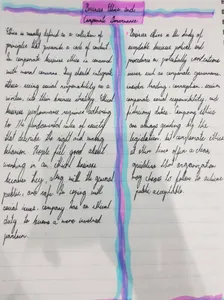 Business Ethics and
Corporate Governance
Ethics is usually defined as a collection of
principles that generate a code of conduct.
In corporate business ethics is concerned
with moral concerns. They should integrate
ethics seeing social responsibility as a
burden into their business strategy. Ethical
business performance requires adhering
to the fundamental rules of society
that delineate the right and wrong
behavior. People feel good about
working in an ethical business
because they, along with the general
public, are safe in coping with
social issues. company has an ethical
duty to become a more involved
position.
Business ethics is the study of
acceptable business policies and
procedures on potentially contentious
issues such as corporate governance
insider trading, corruption,
corporate social responsibility and
fiduciary duties. Company ethics
are always guiding by the
legislation but corporate ethics
at other times offers a clear
guideline that organization
may choose to follow to achieve
public acceptable.